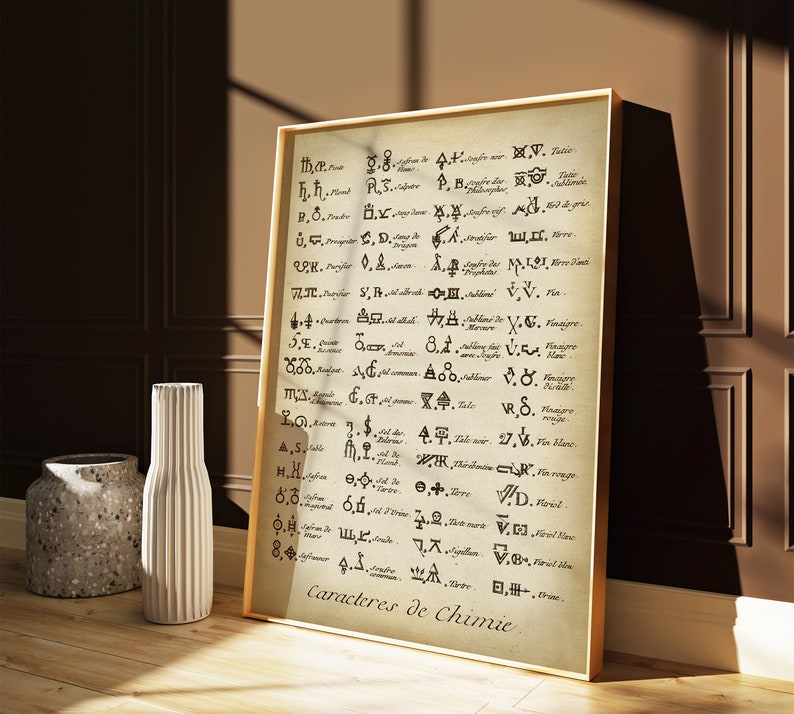 Pinte
Plomb
Poudre
Precipiter
Purifier
Putrifier
Quarteron
Quinte
essence
Realgar
Regule
d'Antimoine
Retorte
Sable
Safran
Safran
magistral
Safran de
Mars
Safranner
Safran de
Venus
Salpetre
Sang de
Dragon
Savon
Sel albroth
Sel alkali
Sel
Armoniac
Sel commun
Sel gemme
Sel des
Pelerins
Sel de
Plomb
Sel de
Tartre
Sel d'Urine
Soude
Soufre
commun
Soufre noir
Soufre des
Philosophes
Soufre vif
Stratifier
Soufre des
Prophetes
Sublimé
Sublimé de
Mercure
Sublimé fait
avec Soufre
Sublimer
Talc
Talc noir
Thérébentine
Terre
Teste morte
Sigillum
Tartre
Tutie
Tutie
Sublimée
Verd de gris
Verre
Verre d'anti
Vin
Vinaigre
Vinaigre
blanc
Vinaigre
distillé
Vinaigre
rouge
Vin blanc
Vin rouge
Vitriol
Vitriol blanc
Vitriol bleu
Urine
Caracteres de Chimie